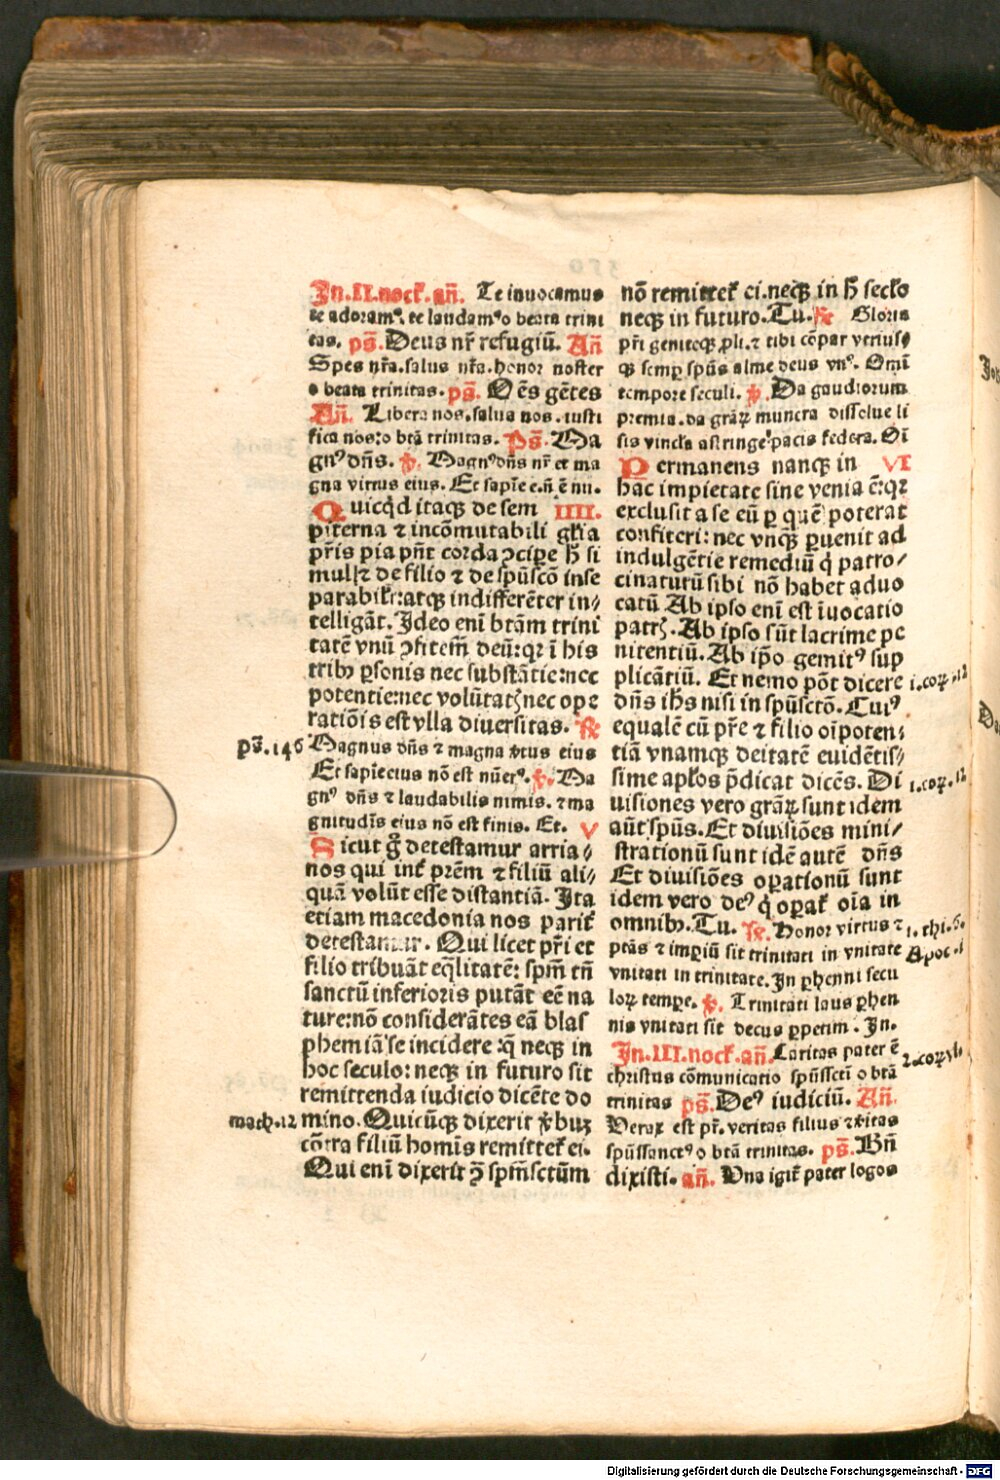 In.II.noct̄.an̄. Te inuocamus
te adoram⁹. te laudam⁹ o beata trini
tas. ps̄. Deus nr̄ refugiū. An̄
Spes nr̄a. salus nr̄a. honor noster
o beata trinitas. ps̄. Oēs gētes
An̄. Libera nos. salua nos. iusti
fica nos: o btā trinitas. Ps̄. Ma
gn⁹ dn̄s. ꝟ. Magn⁹ dn̄s nr̄ et ma
gna virtus eius. Et sapīe e.n̄ ē nu.
Quicq̇d itaqꝫ de sem IIII.
piterna ⁊ incōmutabili gl̄ia
pr̄is pia pn̄t corda ꝯcipe h̄ si
mul ⁊ de filio ⁊ de spūscō inse
parabilr̄: atqꝫ indifferēter in⸗
telligāt. Ideo enī btām trini
tatē vnū ꝯfitem̄ deū: qꝛ ī his
tribꝰ ꝑsonis nec substātie: nec
potentie: nec volūtatꝭ nec ope
ratiōis est vlla diuersitas. ℟
ps̄. 146 Magnus dn̄s ⁊ magna v̓tus eius
Et sapīe eius nō est nūer⁹. ꝟ. Ma
gn⁹ dn̄s ⁊ laudabilis nimis. ⁊ ma
gnitudīs eius nō est finis. Et. V
Sicut gͦ detestamur arria⸗
nos qui int̄ prēm ⁊ filiū ali⸗
quā volūt esse distantiā. Ita
etiam macedonianos parit̄
detestamur. Qui licet pr̄i et
filio tribuāt eq̄litatē: spm̄ tn̄
sanctū inferioris putāt eē na
ture: nō considerātes eā blas
phemiā se incidere: q̄ neqꝫ in
hoc seculo: neqꝫ in futuro sit
remittenda iudicio dicēte do
math. 12 mino. Quicūqꝫ dixerit v̓buꝫ
cōtra filiū homīs remittet̄ ei.
Qui enī dixerit ꝯ̄ spm̄sctūm
nō remittet̄ ei. neqꝫ in h̄ seclo
neqꝫ in futuro. Tu. ℟ Gloria
pr̄i geniteqꝫ ꝓli. ⁊ tibi cōpar vtrius⸗
qꝫ semꝑ spūs alme deus vn⁹. Omī
tempore seculi. ꝟ. Da gaudiorum
premia. da grāꝝ munera dissolue li
tis vincla astringe pacis federa. Oī
Permanens nanqꝫ in VI
hac impietate sine venia ē: qꝛ
exclusit a se eū ꝑ quē poterat
confiteri: nec vnqꝫ ꝑuenit ad
indulgētie remediū q̇ patro⸗
cinaturū sibi nō habet aduo
catū. Ab ipso enī est īuocatio
patrꝭ. Ab ipso sūt lacrime pe
nitentiū. Ab ip̄o gemit⁹ sup
plicātiū. Et nemo pōt dicere 1.coꝝ.12
dn̄s ih̄s nisi in spūsctō. Cui⁹
equalē cū pr̄e ⁊ filio oīpoten⸗
tiā vnamqꝫ deitatē euidētis⸗
sime apl̄os p̄dicat dicēs. Di 1.coꝝ.12
uisiones vero grāꝝ sunt idem
aūt spūs. Et diuisiōes mini⸗
strationū sunt idē autē dn̄s
Et diuisiōes oꝑationū sunt
idem vero de⁹ q̇ oꝑat̄ oīa in
omnibꝰ. Tu. ℟. Honor virtus ⁊ 1.thi.6.
ptās ⁊ imꝑiū sit trinitati in vnitate Apoc.1
vnitati in trinitate. In ꝑhenni secu
loꝝ tempe. ꝟ. Trinitati laus ꝑhen
nis vnitati sit decus ꝑpetim. In.
In.III.noct̄.an̄. Caritas pater ē 2.coꝝ
christus cōmunicatio spūssctī o btā
trinitas ps̄. De⁹ iudiciū. An̄.
Verax est pr̄. veritas filius ⁊ v̓itas
spūssanct⁹ o btā trinitas. ps̄. Bn̄
dixisti. an̄. Vna igit̄ pater logos
Digitalisierung gefördert durch die Deutsche Forschungsgemeinschaft - DFG